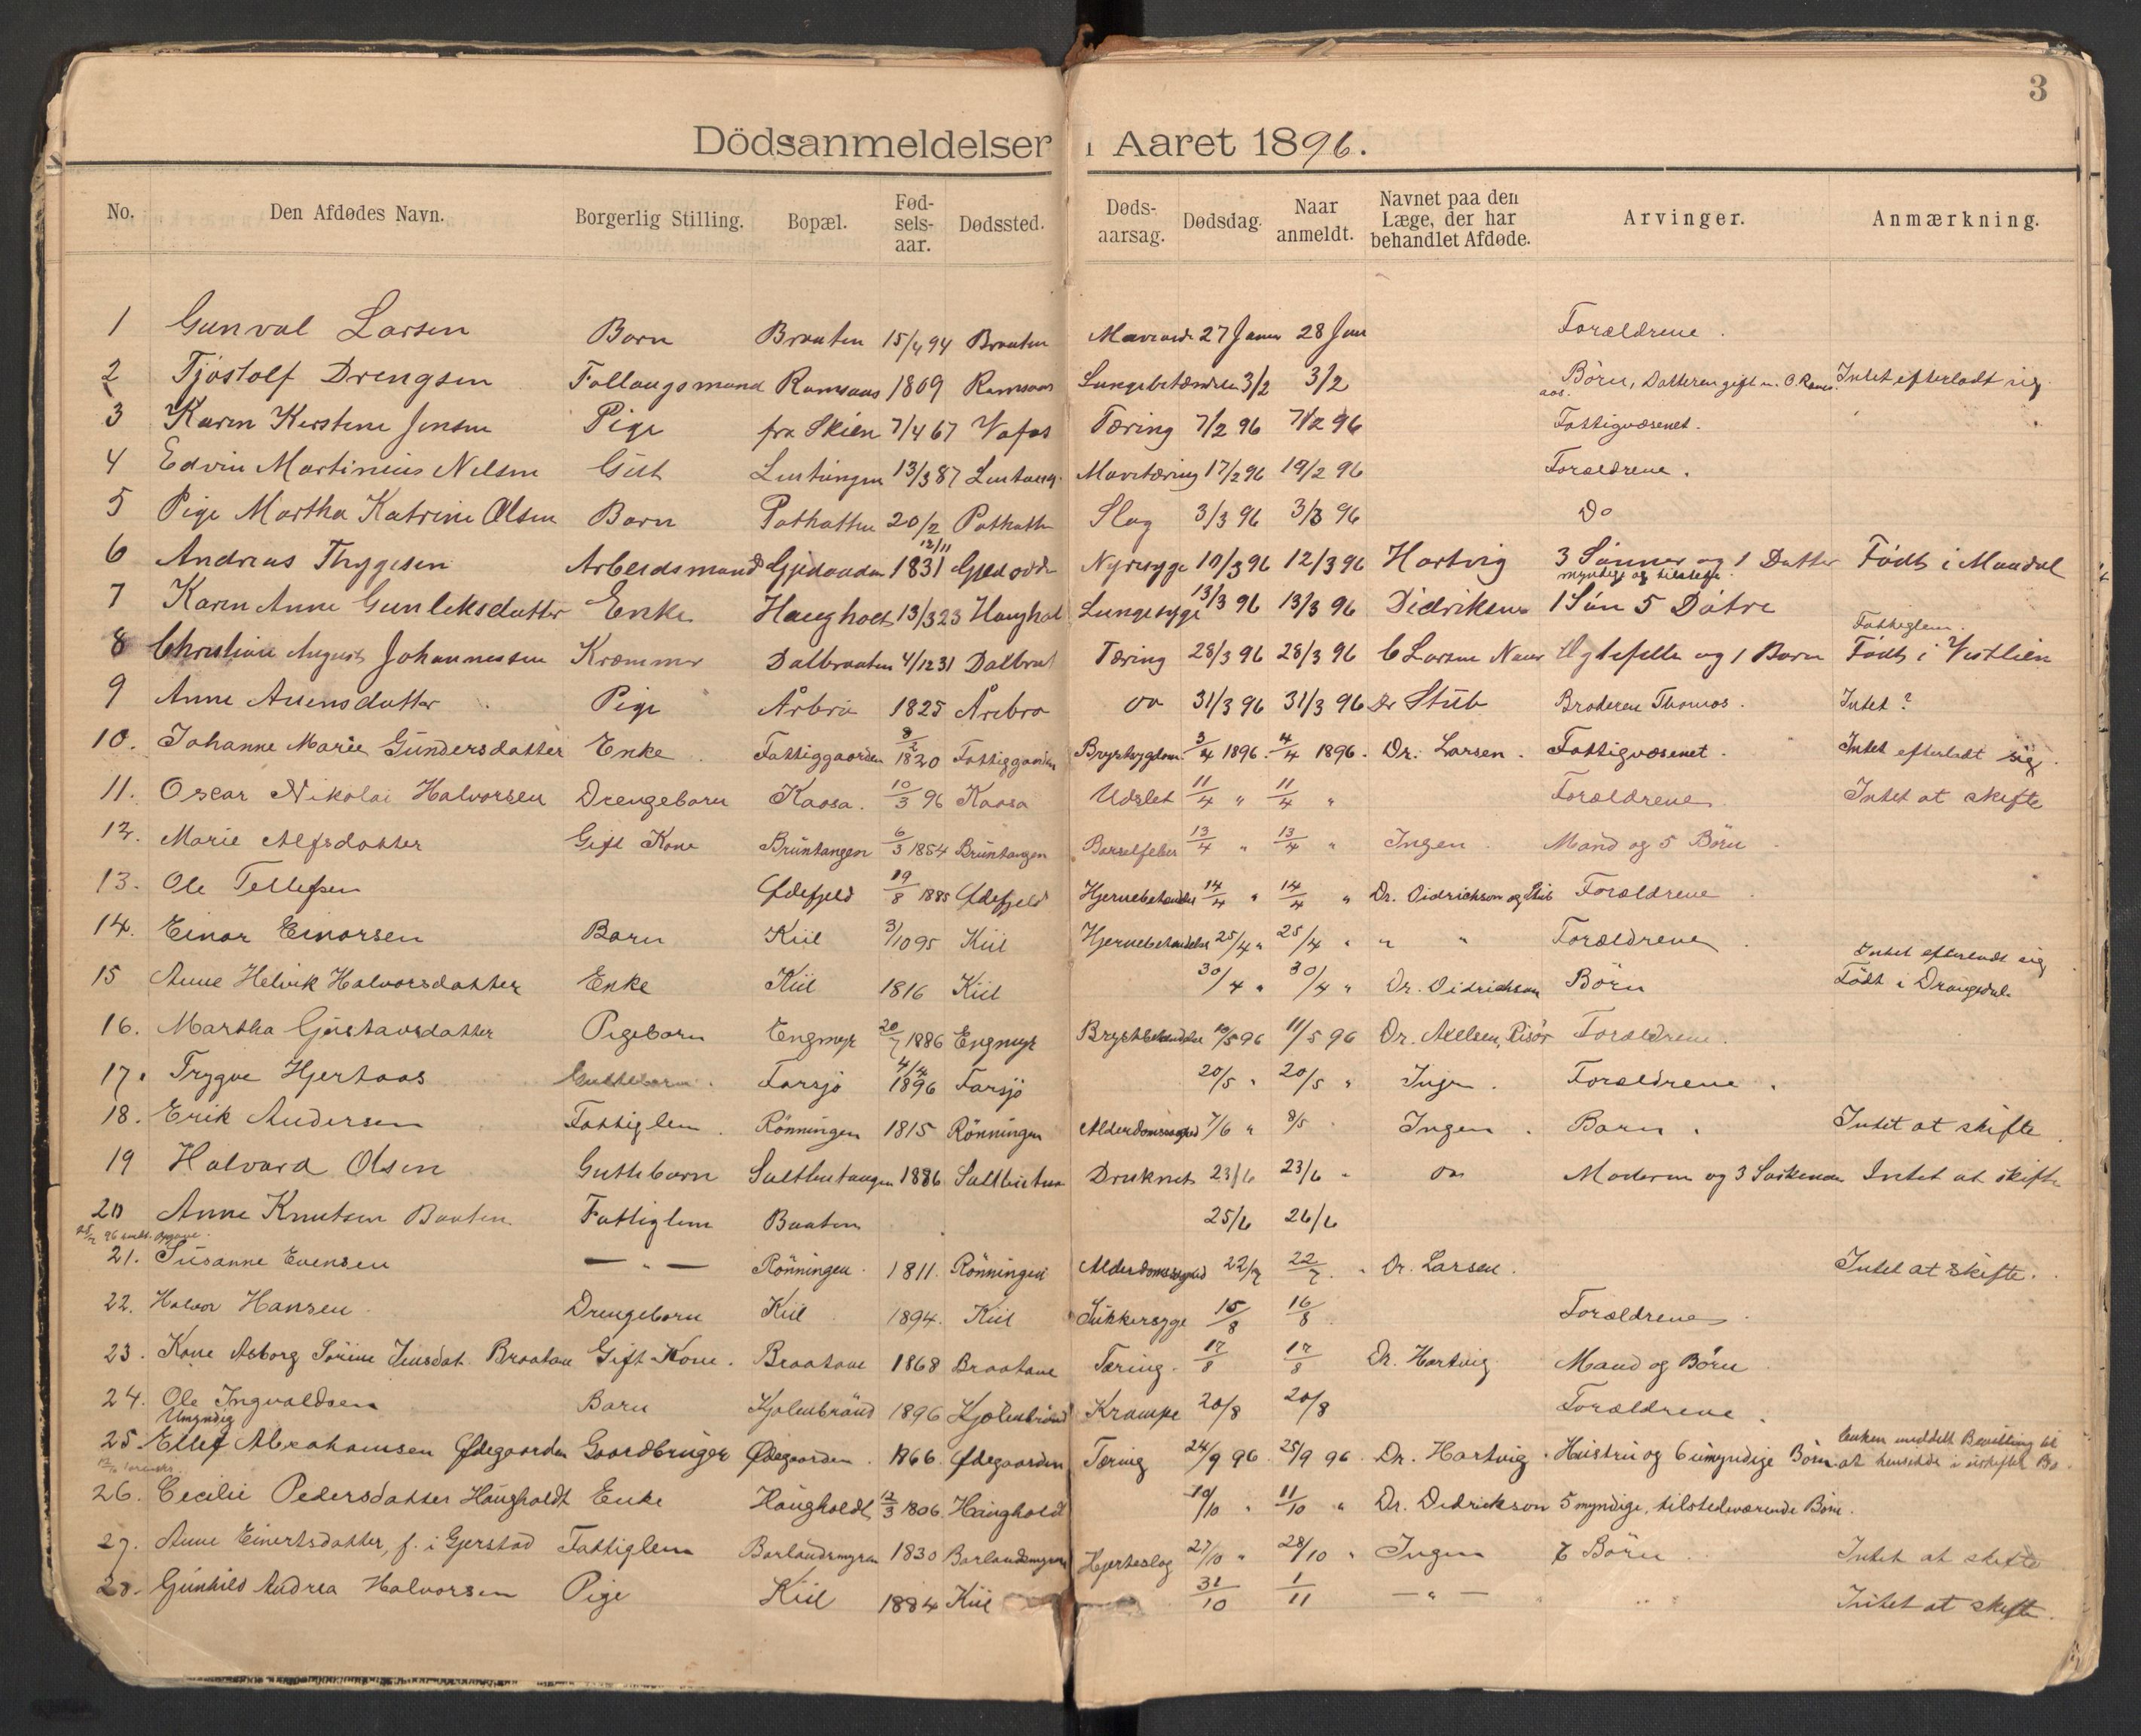 3
Dödsanmeldelser i Aaret 1896.
No. Den Afdødes Navn. Borgerlig Stilling. Bopæl. Fød-sels-aar. Dødssted. Døds-aarsag. Dødsdag. Naar anmeldt. Navnet paa den Læge, der har behandlet Afdøde. Arvinger. Anmærkning.
1 Gunval Larsen Barn Braaten 15/4 94 Braaten 27 Januar 28 Jan Forældrene.
2 Tjøstolf Drengsen Follaugsmand Ramsaas 1809 Ramsaas Lungebetændelse 3/2 3/2 Börn, Datteren gift m. O. Rams-aas. Intet efterladt sig
3 Karen Kirstine Jensen Pige fra Skien 7/4 67 Vafos Tæring 7/2 96 7/2 96 Fattigvæsenet.
4 Edvin Martinius Nilsen Gut Lintangen 13/3 87 Lintang. Mavetæring 17/2 96 19/2 96 Forældrene.
5 Pige Martha Katrine Olsen Barn Pothatten 20/2 Pothatten Slag 3/3 96 3/3 96 Do
6 Andreas Thygesen Arbeidsmand Gjedodden 12/11 1831 Gjedodden Nyresyge 10/3 96 12/3 96 Hartvig 3 Sønner og 1 Datter myndige og tilstede. Födt i Mandal
7 Karen Anne Gunleksdatter Enke Haugholt 13/3 23 Haugholt Lungesyge 13/3 96 13/3 96 Didriksen 1 Sön 5 Dötre
8 Christian August Johannessen Kræmmer Dalbraaten 4/12 31 Dalbraat Tæring 28/3 96 28/3 96 C Larsen Næs Ægtefelle og 1 Barn Fattiglem. Födt i Vestlien
9 Anne Avensdatter Pige Årbro 1825 Årebro do 31/3 96 31/3 96 Dr Stub Broderen Thomas. Intet?
10. Johanne Marie Gundersdatter Enke Fattiggaarden 1820 Fattiggaarden Brystsygdom. 3/4 1896. 4/4 1896. Dr. Larsen. Fattigvæsenet. Intet efterladt sig.
11. Oscar Nikolai Halvorsen Drengebarn Kaasa. 10/3 96 Kaasa Udslet 11/4 " 11/4 " Forældrene Intet at skifte
12. Marie Alfsdatter Gift Kone Bruntangen 6/3 1854 Bruntangen Barselfeber 13/4 " 13/4 " Ingen. Mand og 5 Börn
13. Ole Tellefsen Ødefjeld 19/8 1885 Ødefjeld Hjernebetændelse 14/4 " 14/4 " Dr. Didrichson og Stub Forældrene
14. Einar Einarsen Barn Kiil 3/10 95 Kiil Hjernebetændelse 25/4 " 25/4 " " " Forældrene
15 Anne Helvik Halvorsdatter Enke Kiil 1816 Kiil 30/4 " 30/4 " Dr. Didrichson Börn Intet efterladt sig Födt i Drangedal.
16. Martha Gustavsdatter Pigebarn Engmyr 20/7 1886 Engmyr Brystbetændelse 10/5 96 11/5 96 Dr. Axelsen, Risör Forældrene.
17. Trygve Hjertaas Guttebarn. Farsjö 4/4 1896 Farsjö 20/5 " 20/5 " Ingen. Forældrene.
18. Erik Andersen Fattiglem. Rönningen 1815 Rönningen Alderdomssvaghed 7/6 " 8/5 Ingen. Barn. Intet at skifte.
19 Halvard Olsen Guttebarn Saltbutangen 1886 Druknet 23/6 23/6 " do Moderen og 3 Søskende Intet at skifte
20 Anne Knutsen Baaten Fattiglem Baaten 25/6 26/6
21. Susanne Evensen — " — Rönningen. 1811. Rönningen Alderdomssvaghed 22/7 22/7. " Dr. Larsen. Intet at skifte.
22. Halvor Hansen. Drengebarn Kiil 1894. Kiil Sukkersyge 15/8 16/8 Forældrene
23. Kone Asborg Sörine Jensdat. Braatane Gift Kone. Braatane 1868 Braatane Tæring. 17/8 17/8 Dr. Hartvig. Mand og Börn
24. Ole Ingvaldsen Barn Kjølenbrand 1896 Kjølenbrand Krampe 20/8 20/8 Forældrene.
Umyndig
25. Ellef Abrahamsen Ødegaarden Gaardbruger Ødegaarden. 1866. Ødegaarden Tæring 24/9 96. 25/9 96. Dr. Hartvig. Hustru og 6 umyndige Börn. Enken meddelt Bevilling til at hensidde i uskiftet Bo.
26. Cecilie Pedersdatter Haugholdt Enke Haugholdt 12/3 1806. Haugholdt 10/10 " 11/10 " Dr. Didrickson 5 myndige, tilstedeværende Börn.
27. Anne Einertsdatter, f. i Gjerstad Fattiglem Barlandsmyren 1830 Barlandsmyren Hjerteslag 27/10 " 28/10 " Ingen Börn Intet at skifte
28. Gunhild Andrea Halvorsen Pige Kiil 1884 Kiil 31/10 1/11 — " — Intet at skifte.